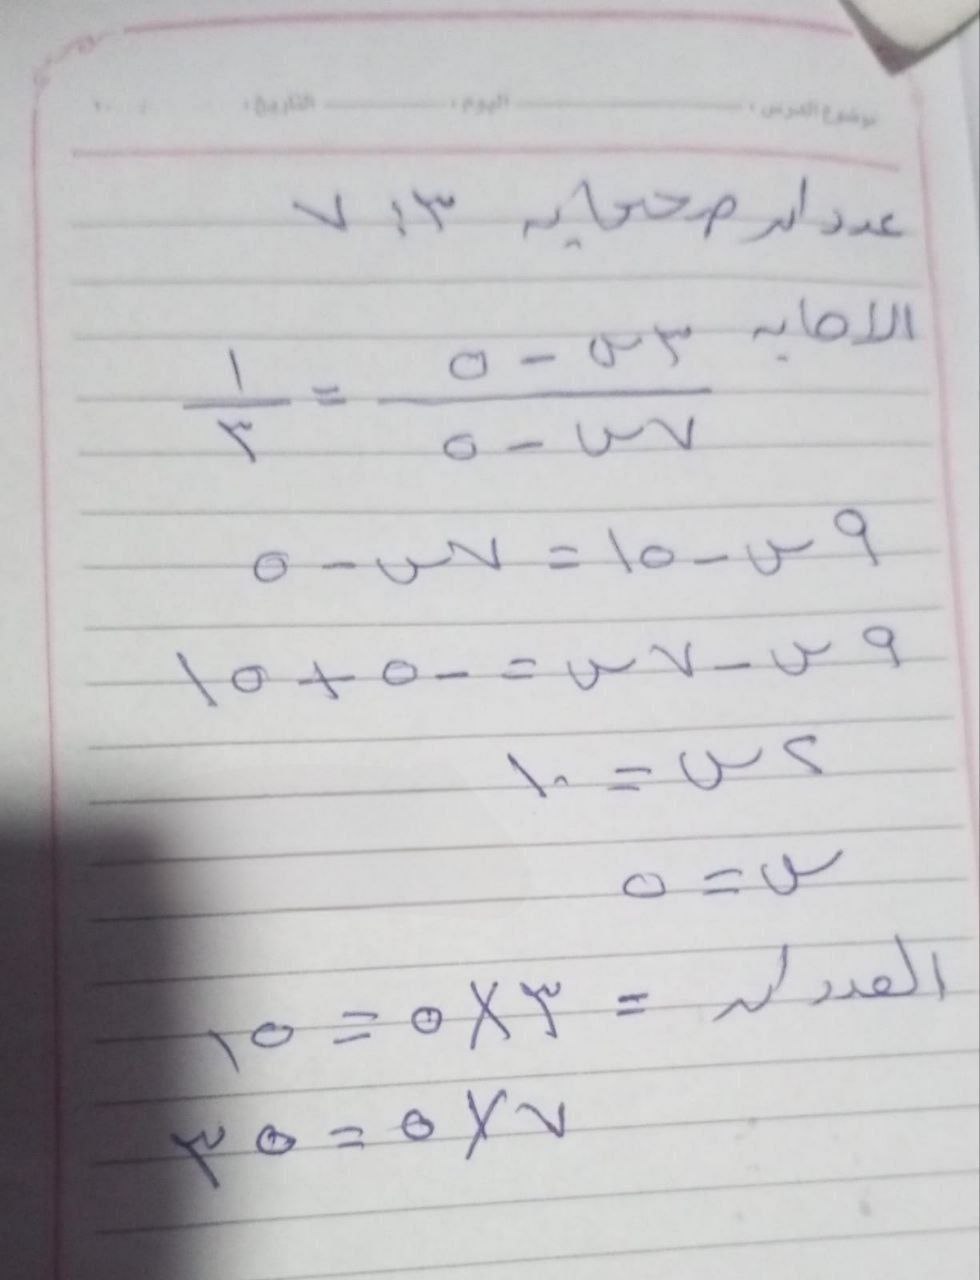 موضوع الدرس: اليوم: التاريخ:
عددان صحيحان ٣ : ٧
الاجابه
٣س - ٥ / ٧س - ٥ = ١ / ٣
٩س - ١٥ = ٧س - ٥
٩س - ٧س = -٥ + ١٥
٢س = ١٠
س = ٥
العددان = ٣ × ٥ = ١٥
٧ × ٥ = ٣٥